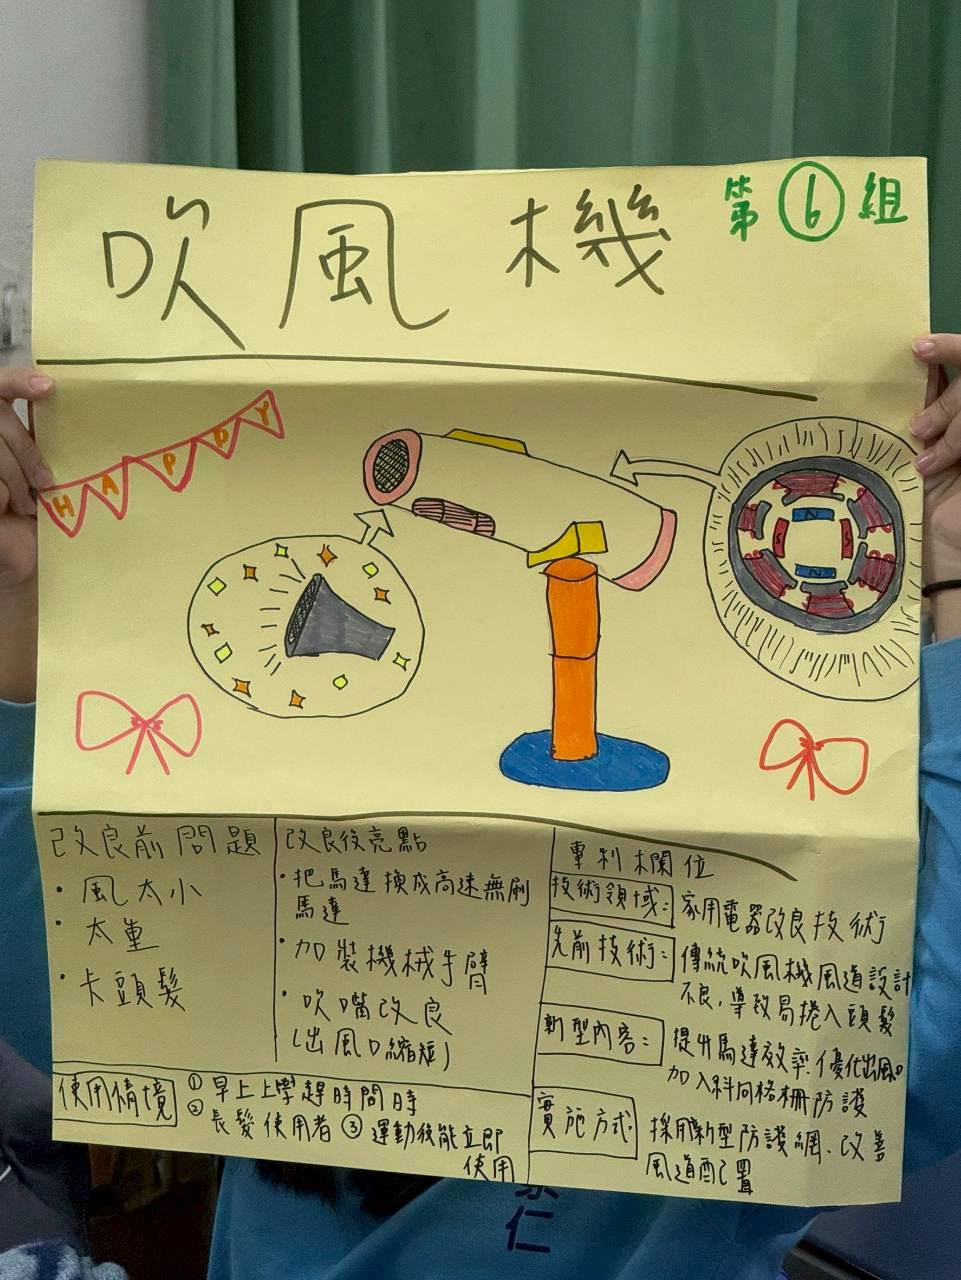 吹風機
第6組
HAPPY
N
S
S
N
改良前問題
・風太小
・太重
・卡頭髮
改良後亮點
・把馬達換成高速無刷
馬達
・加裝機械手臂
・吹嘴改良
(出風口縮短)
專利欄位
技術領域：家用電器改良技術
先前技術：傳統吹風機風道設計
不良，導致易捲入頭髮
新型內容：提升馬達效率，優化出風口
加入斜向格柵防護
實施方式：採用新型防護網、改善
風道配置
使用情境
①早上上學趕時間時
②長髮使用者 ③運動後能立即
使用
仁